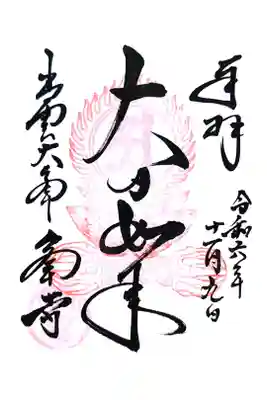 奉拝
令和六年
十一月九日
大日如来
出雲大峯
峯寺